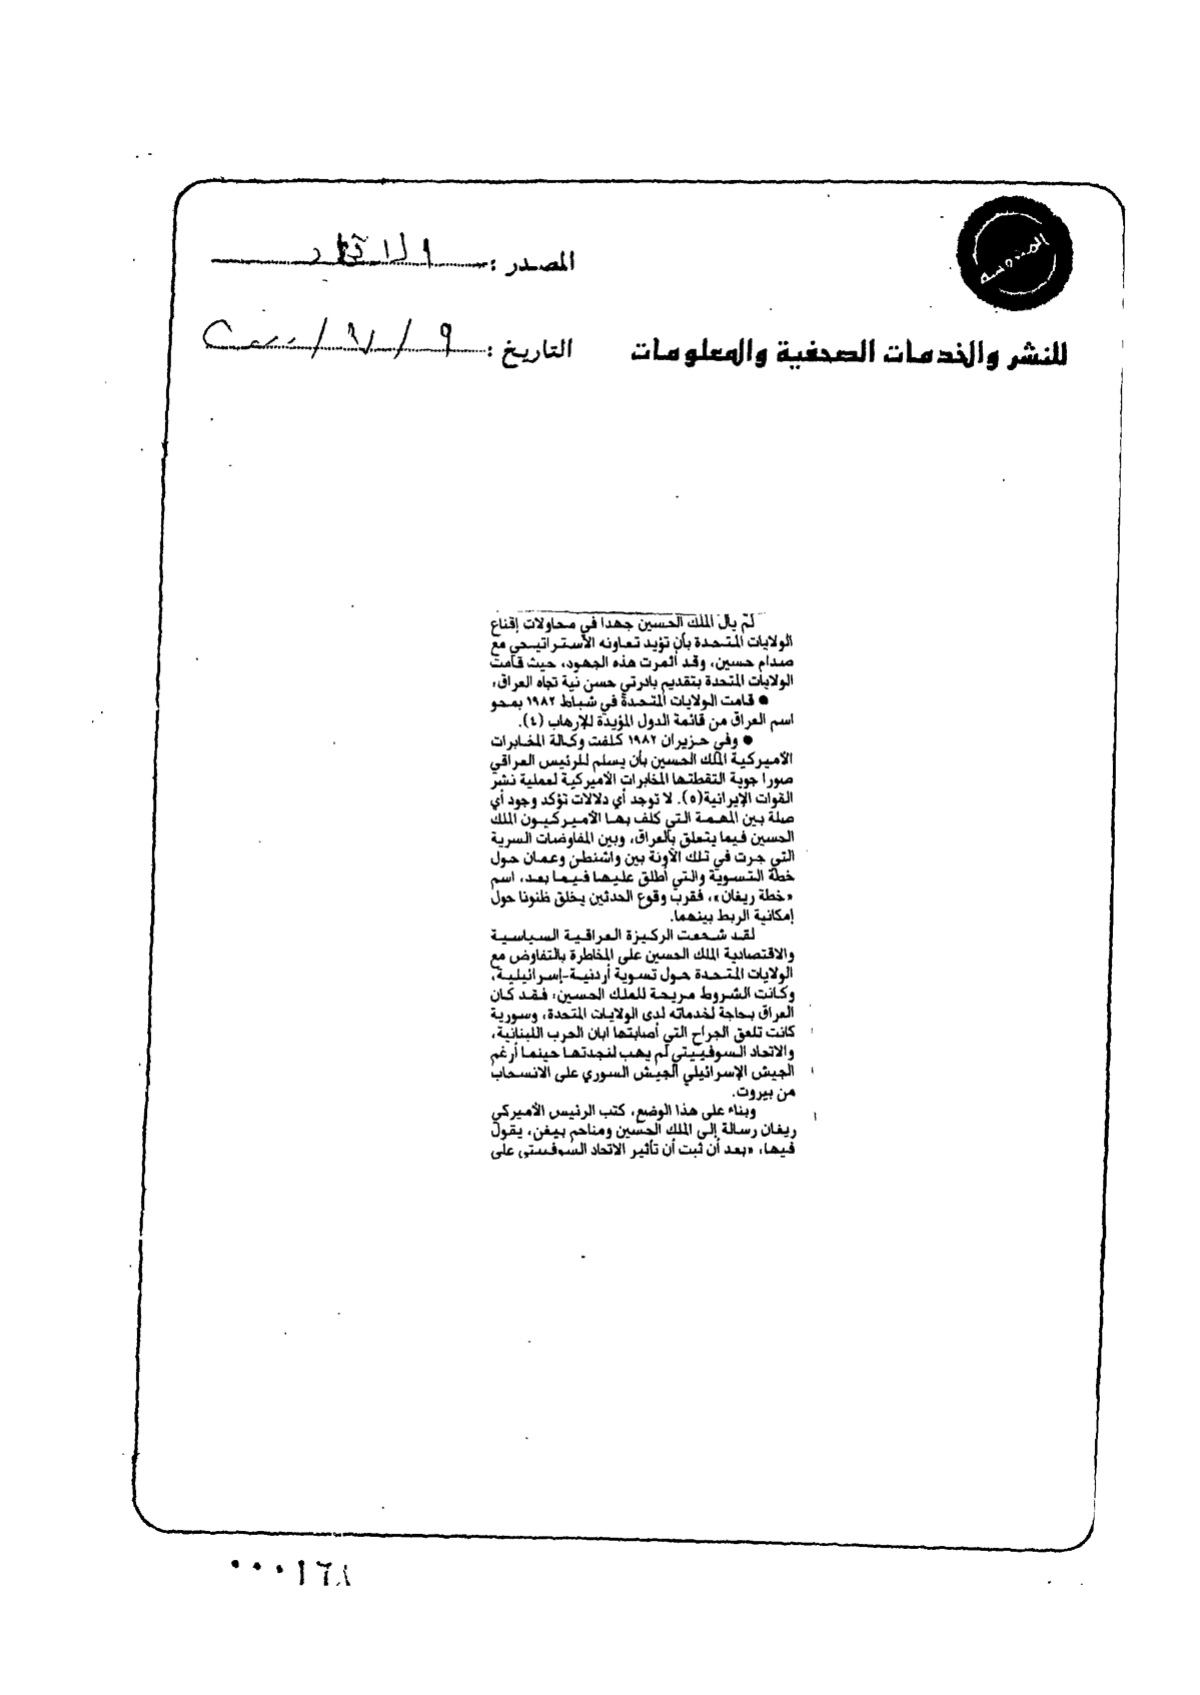 المصدر : الاتحاد
للنشر والخدمات الصحفية والمعلومات
التاريخ : ٩ / ٧ / ٢٠٠٠
لم يال الملك الحسين جهدا في محاولات إقناع
الولايات المتحدة بأن تؤيد تعاونه الاستراتيجي مع
صدام حسين، وقد أثمرت هذه الجهود، حيث قامت
الولايات المتحدة بتقديم بادرتي حسن نية تجاه العراق:
● قامت الولايات المتحدة في شباط ١٩٨٢ بمحو
اسم العراق من قائمة الدول المؤيدة للإرهاب (٤).
● وفي حزيران ١٩٨٢ كلفت وكالة المخابرات
الأميركية الملك الحسين بأن يسلم للرئيس العراقي
صورا جوية التقطتها المخابرات الأميركية لعملية نشر
القوات الإيرانية(٥). لا توجد أي دلالات تؤكد وجود أي
صلة بين المهمة التي كلف بها الأميركيون الملك
الحسين فيما يتعلق بالعراق، وبين المفاوضات السرية
التي جرت في تلك الآونة بين واشنطن وعمان حول
خطة التسوية والتي أطلق عليها فيما بعد، اسم
«خطة ريغان»، فقرب وقوع الحدثين يخلق ظنونا حول
إمكانية الربط بينهما.
لقد شجعت الركيزة العراقية السياسية
والاقتصادية الملك الحسين على المخاطرة بالتفاوض مع
الولايات المتحدة حول تسوية أردنية-إسرائيلية،
وكانت الشروط مريحة للملك الحسين: فقد كان
العراق بحاجة لخدماته لدى الولايات المتحدة، وسورية
كانت تلعق الجراح التي أصابتها ابان الحرب اللبنانية،
والاتحاد السوفييتي لم يهب لنجدتها حينما أرغم
الجيش الإسرائيلي الجيش السوري على الانسحاب
من بيروت.
وبناء على هذا الوضع، كتب الرئيس الأميركي
ريغان رسالة إلى الملك الحسين ومناحم بيغن، يقول
فيها، «بعد أن ثبت أن تأثير الاتحاد السوفييتي على
٠٠٠١٦٨